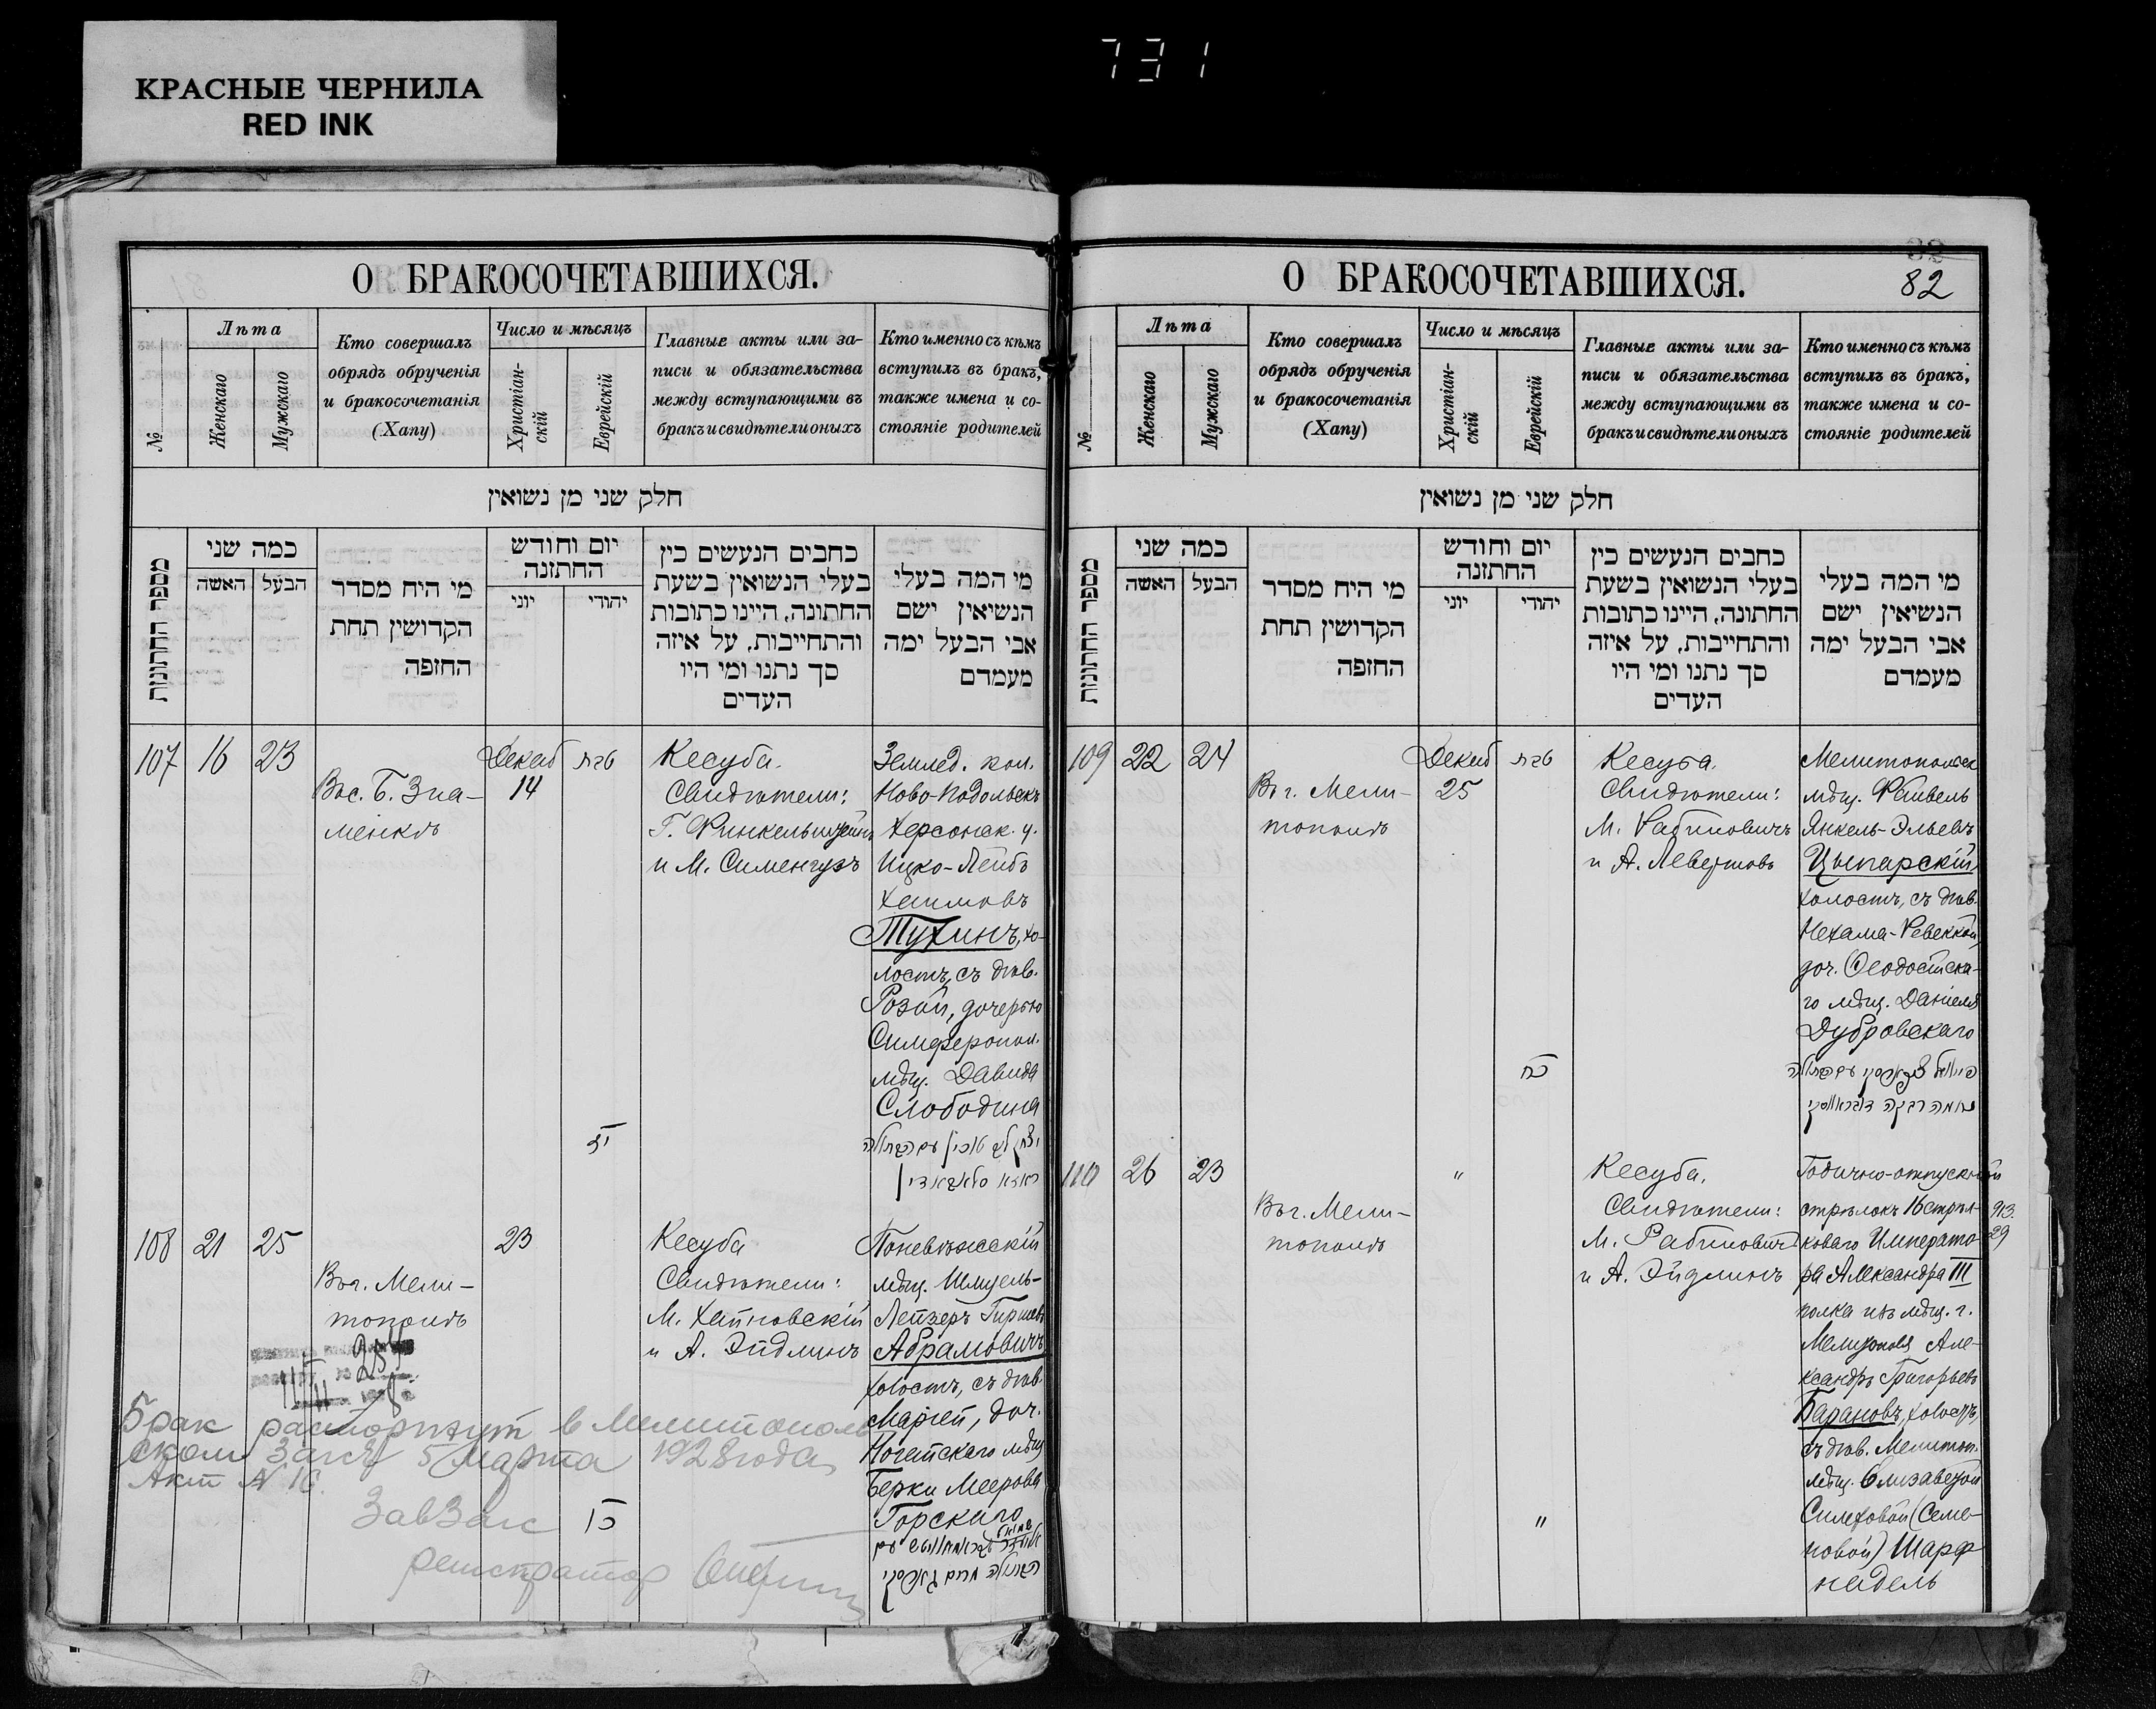 КРАСНЫЕ ЧЕРНИЛА
RED INK
731
О БРАКОСОЧЕТАВШИХСЯ.
№
Лѣта
Женскаго
Мужскаго
Кто совершалъ
обрядъ обрученія
и бракосочетанія
(Хапу)
Число и мѣсяцъ
Христіан-
скій
Еврейскій
Главные акты или за-
писи и обязательства
между вступающими въ
бракъ и свидѣтели оныхъ
Кто именно съ кѣмъ
вступилъ въ бракъ,
также имена и со-
стояніе родителей
חלק שני מן נשואין
מספר החתונות
כמה שני
האשה
הבעל
מי היח מסדר
הקדושין תחת
החופה
יום וחודש
החתונה
יוני
יהודי
כחבים הנעשים כין
בעלי הנשואין בשעת
החתונה, היינו כתובות
והתחייבות, על איזה
סך נתנו ומי היו
העדים
מי המה בעלי
הנשיאין ישם
אבי הבעל ימה
מעמדם
107
16
23
Вос. Б. Зна-
менкѣ
Декаб
14
טבת
יג
Кесуба.
Свидѣтели:
Г. Финкельштейнъ
и М. Сименгузъ
Землед. кол.
Ново-Подольскъ
Херсонск. у.
Ицко-Лейбъ
Хаимовъ
Тухинъ, хо-
лостъ, съ дѣв.
Розой, дочерью
Симферопол.
мѣщ. Давида
Слободина
108
21
25
Въ г. Мели-
тополѣ
23
Кесуба
Свидѣтели:
М. Хайновскій
и А. Эйдлинъ
Поневѣжскій
мѣщ. Шмуель-
Лейзеръ Гиршевъ
Абрамовичъ
холостъ, съ дѣв.
Маріей, доч.
Ногайскаго мѣщ
Берки Меерова
Горскаго
Брак расторгнут в Мелитополь
ском Загсе 5 марта 1928 года
Акт № 16.
ЗавЗагс
регистратор
О БРАКОСОЧЕТАВШИХСЯ.
82
№
Лѣта
Женскаго
Мужскаго
Кто совершалъ
обрядъ обрученія
и бракосочетанія
(Хапу)
Число и мѣсяцъ
Христіан-
скій
Еврейскій
Главные акты или за-
писи и обязательства
между вступающими въ
бракъ и свидѣтели оныхъ
Кто именно съ кѣмъ
вступилъ въ бракъ,
также имена и со-
стояніе родителей
חלק שני מן נשואין
מספר החתונות
כמה שני
האשה
הבעל
מי היח מסדר
הקדושין תחת
החופה
יום וחודש
החתונה
יוני
יהודי
כחבים הנעשים כין
בעלי הנשואין בשעת
החתונה, היינו כתובות
והתחייבות, על איזה
סך נתנו ומי היו
העדים
מי המה בעלי
הנשיאין ישם
אבי הבעל ימה
מעמדם
109
22
24
Въ г. Мели-
тополѣ
Декаб
25
טבת
Кесуба.
Свидѣтели:
М. Рабиновичъ
и А. Левертовъ
Мелитопольск
мѣщ. Файвель
Янкель-Эльевъ
Цыпарскій
холостъ, съ дѣв.
Нехама-Ревеккой,
доч. Ѳеодосійска-
го мѣщ. Даніеля
Дубровскаго
110
26
23
Въ г. Мели-
тополѣ
"
"
Кесуба.
Свидѣтели:
М. Рабиновичъ
и А. Эйдлинъ
Годично-отпускной
стрѣлокъ 16 стрѣл-
коваго Императо-
ра Александра III
полка изъ мѣщ. г.
Мелитополя Але-
ксандръ Григорьевъ
Барановъ, холостъ,
съ дѣв. Мелитоп.
мѣщ. Елизаветой
Симховой (Семе-
новой) Шарф
надель
29